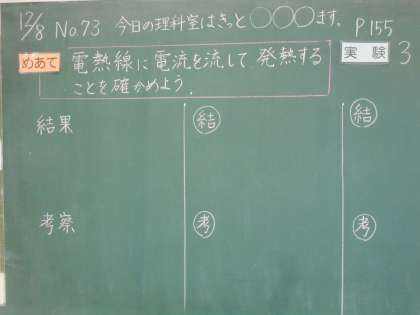 12/8 No.73 今日の理科室はきっと〇〇〇ます。 P155
めあて 電熱線に電流を流して、発熱する
ことを確かめよう。
実験 3
結果 結 結
考察 考 考